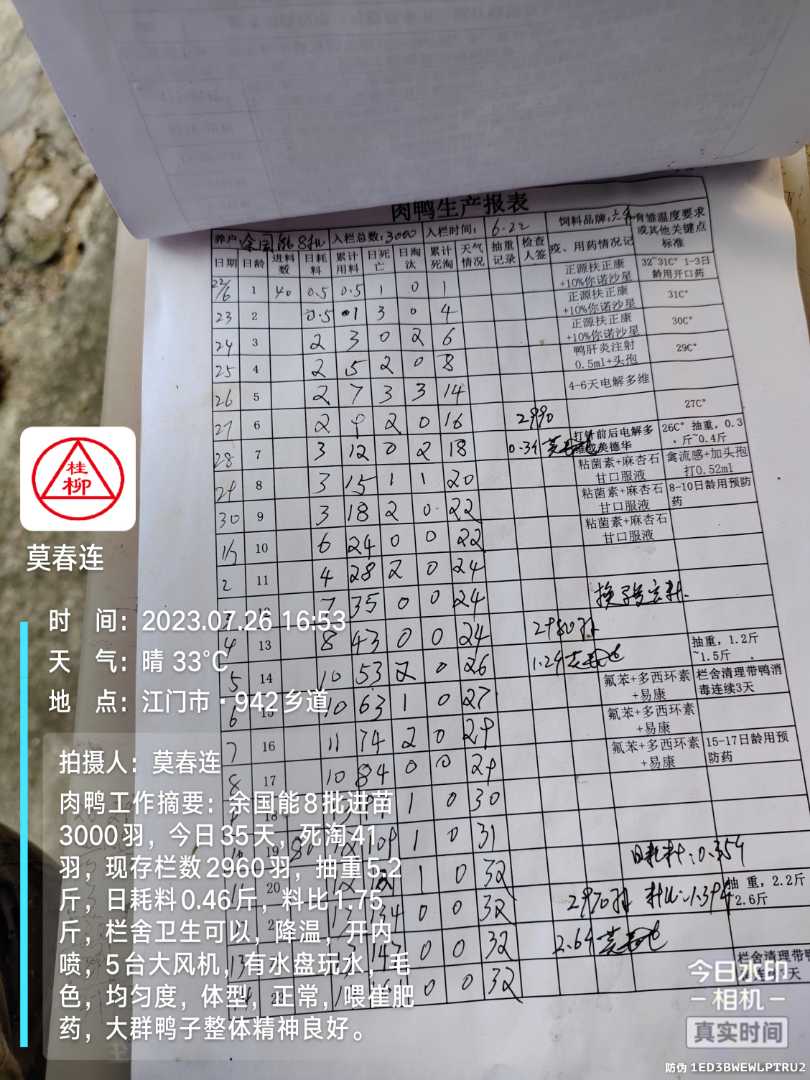 肉鸭生产报表
养户 余国能 8批 入栏总数: 3000 入栏时间: 6.22 饲料品牌: 六和 育雏温度要求或其他关键点标准
日期 日龄 进料数 日耗料 累计用料 日死亡 日淘汰 累计死淘 天气情况 抽重记录 检查人签 疫、用药情况记
22/6 1 40 0.5 0.5 1 0 1 正源扶正康+10%你诺沙星 32~31C° 1-3日龄用开口药
23 2 0.5 1 3 0 4 正源扶正康+10%你诺沙星 31C°
24 3 2 3 0 2 6 正源扶正康+10%你诺沙星 30C°
25 4 2 5 2 0 8 鸭肝炎注射0.5ml+头孢 29C°
26 5 2 7 3 3 14 4-6天电解多维
27 6 2 9 2 0 16 2990 27C°
28 7 3 12 0 2 18 0.34 打针前后电解多 26C° 抽重，0.3斤~0.4斤
29 8 3 15 1 1 20 粘菌素+麻杏石甘口服液 禽流感+加头孢打0.52ml
30 9 3 18 2 0 22 粘菌素+麻杏石甘口服液 8-10日龄用预防药
10 6 24 0 0 22 粘菌素+麻杏石甘口服液
2 11 4 28 2 0 24
7 35 0 0 24
4 13 8 43 0 0 24 2980
5 14 10 53 2 0 26 1.24 抽重，1.2斤~1.5斤
6 15 10 63 1 0 27 氟苯+多西环素+易康 栏舍清理带鸭消毒连续3天
7 16 11 74 2 0 29 氟苯+多西环素+易康
8 17 10 84 0 0 29 氟苯+多西环素+易康 15-17日龄用预防药
18 1 0 30
19 1 0 31
20 1 0 32 日耗料:0.354
134 0 0 32 2970 料比:1.394 抽重，2.2斤 2.6斤
0 0 32 2.64
0 0 32 栏舍清理带鸭
桂柳
莫春连
时 间: 2023.07.26 16:53
天 气: 晴 33℃
地 点: 江门市·942乡道
拍摄人: 莫春连
肉鸭工作摘要: 余国能8批进苗
3000羽，今日35天，死淘41
羽，现存栏数2960羽，抽重5.2
斤，日耗料0.46斤，料比1.75
斤，栏舍卫生可以，降温，开内
喷，5台大风机，有水盘玩水，毛
色，均匀度，体型，正常，喂崔肥
药，大群鸭子整体精神良好。
今日水印
-相机-
真实时间
防伪 1ED3BWEWLPTRU2